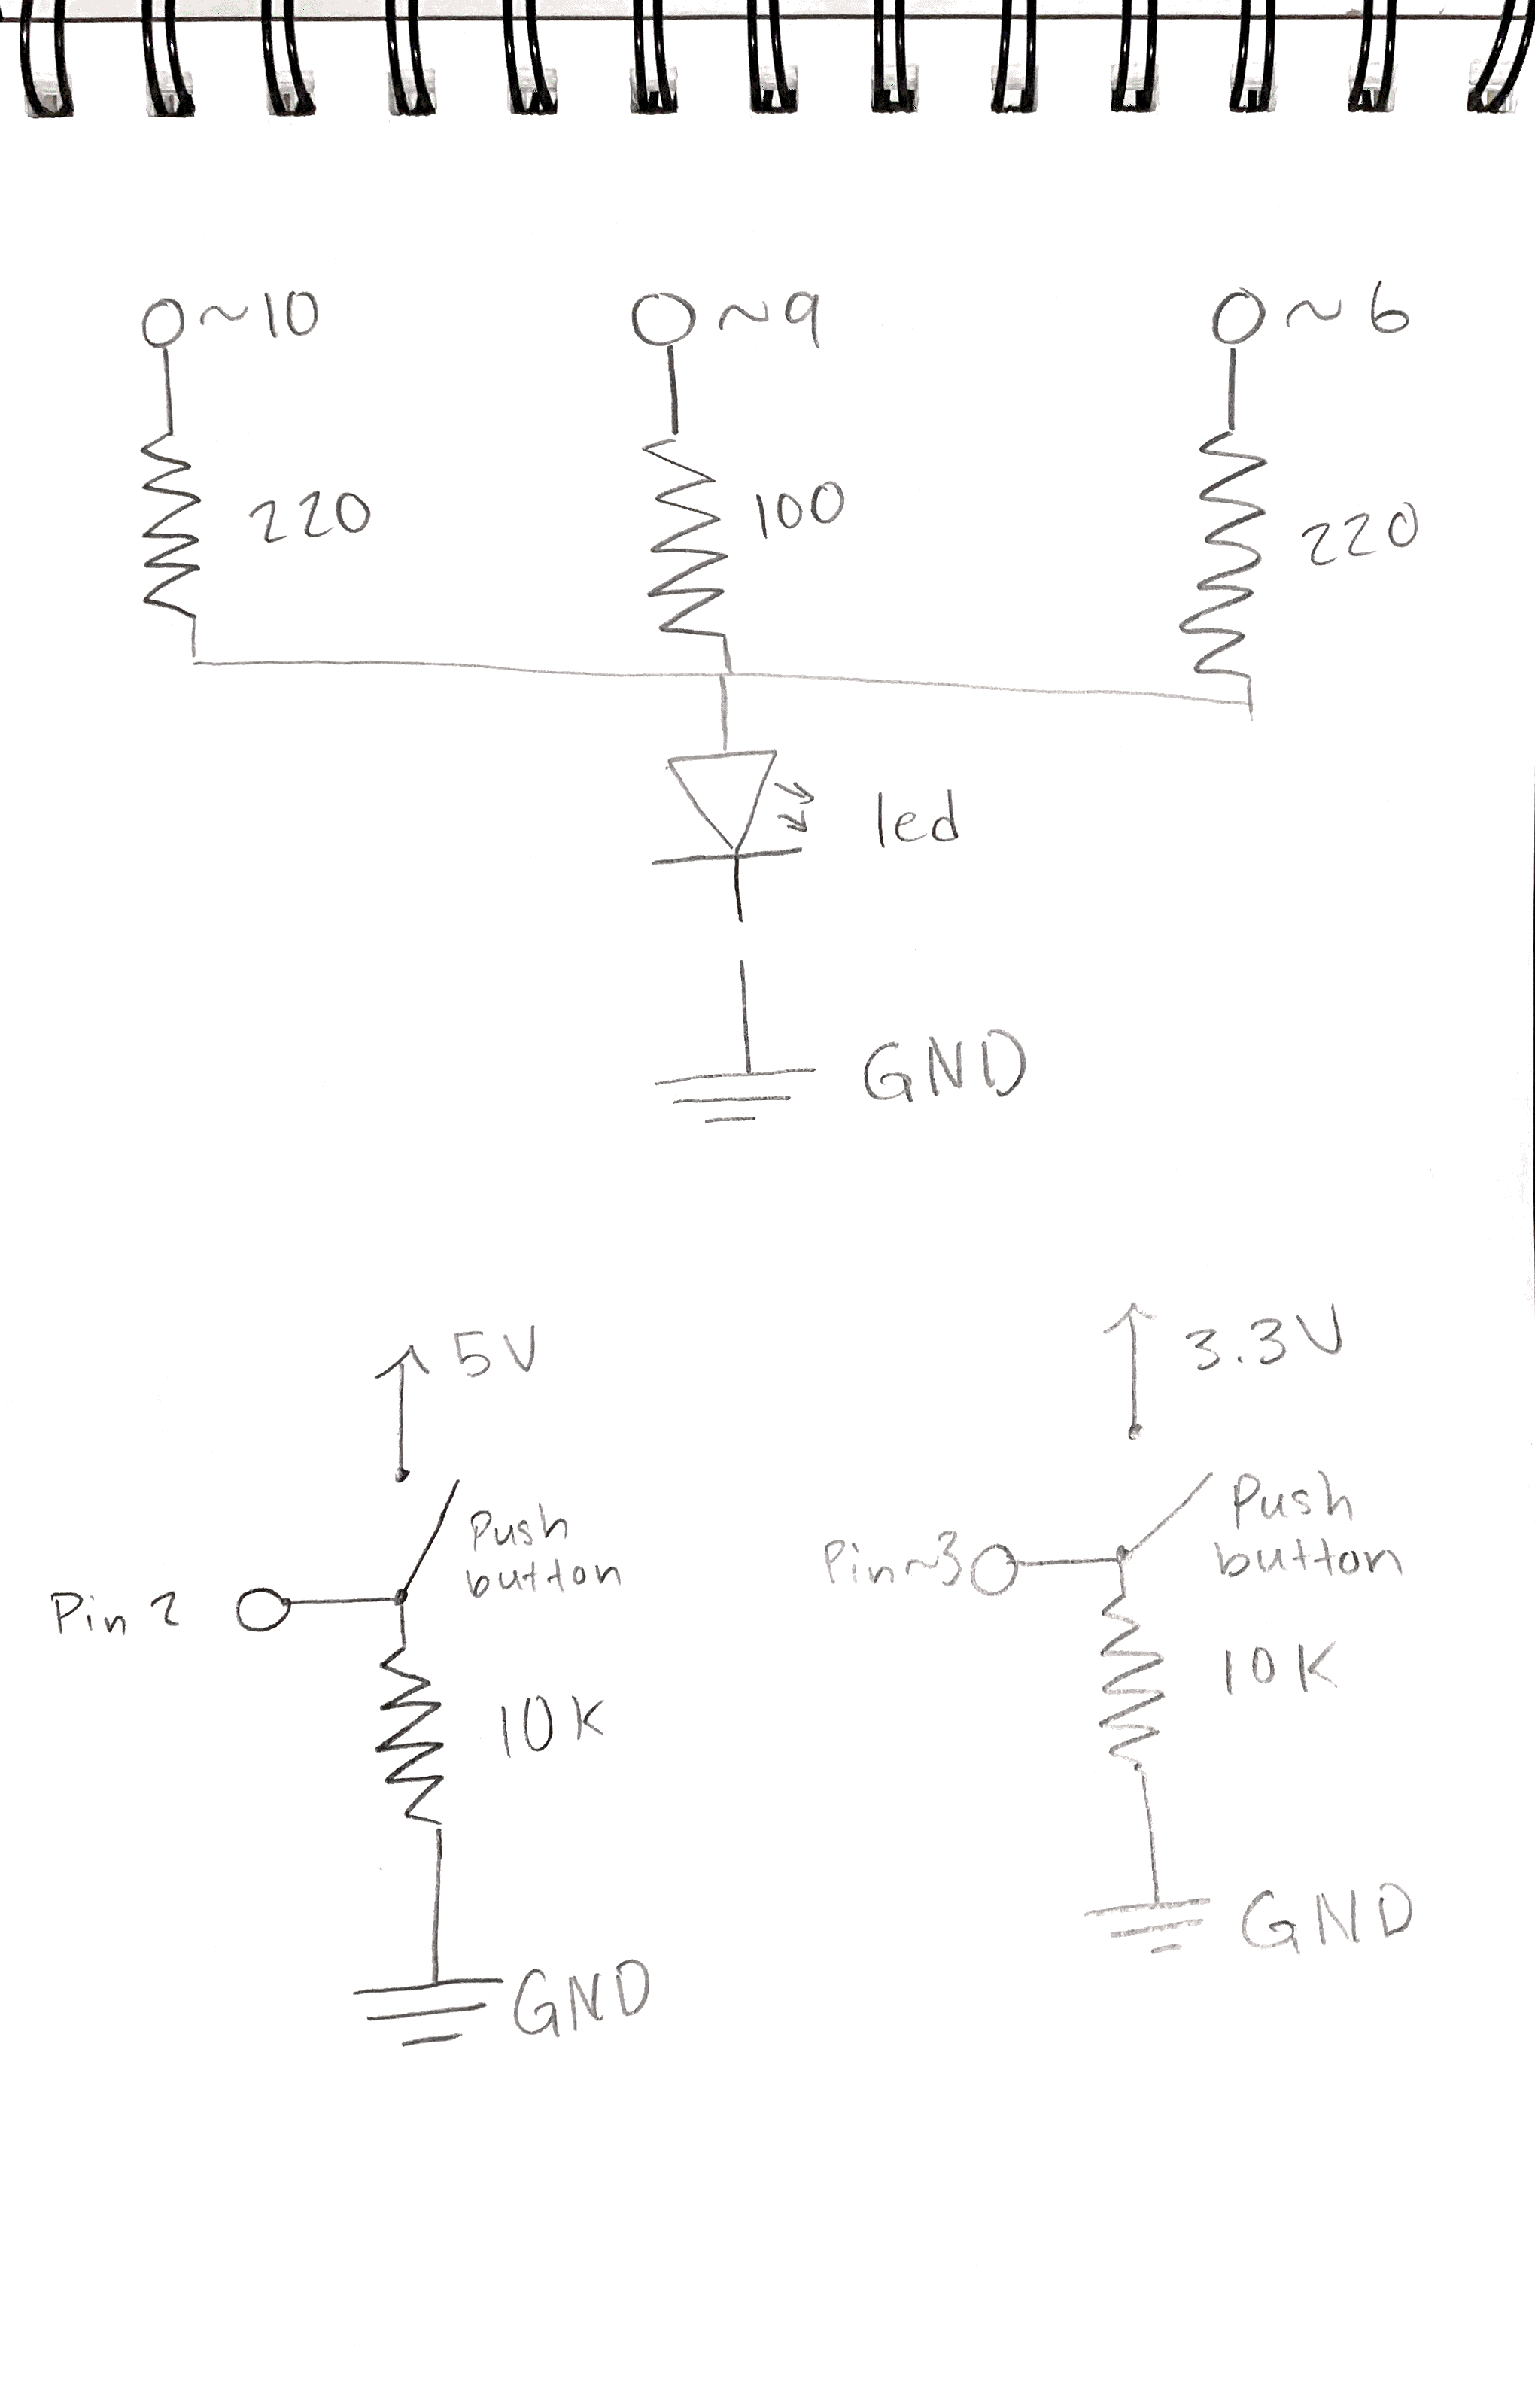 ~10
~9
~6
220
100
220
led
GND
5V
Push
button
Pin 2
10K
GND
3.3V
Push
button
Pin~3
10K
GND